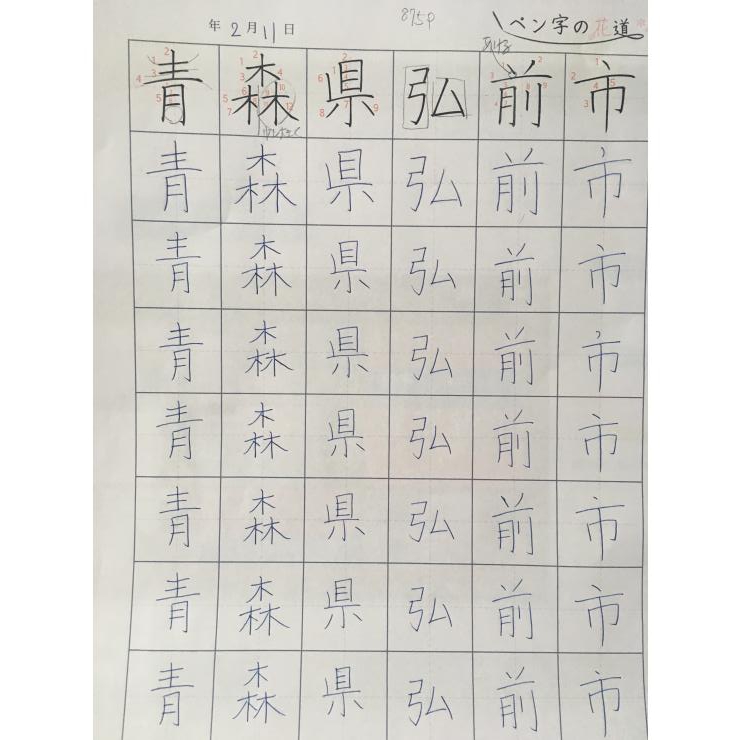 875P
年2月11日
ペン字の花道
青森県弘前市
青森県弘前市
青森県弘前市
青森県弘前市
青森県弘前市
青森県弘前市
青森県弘前市
青森県弘前市